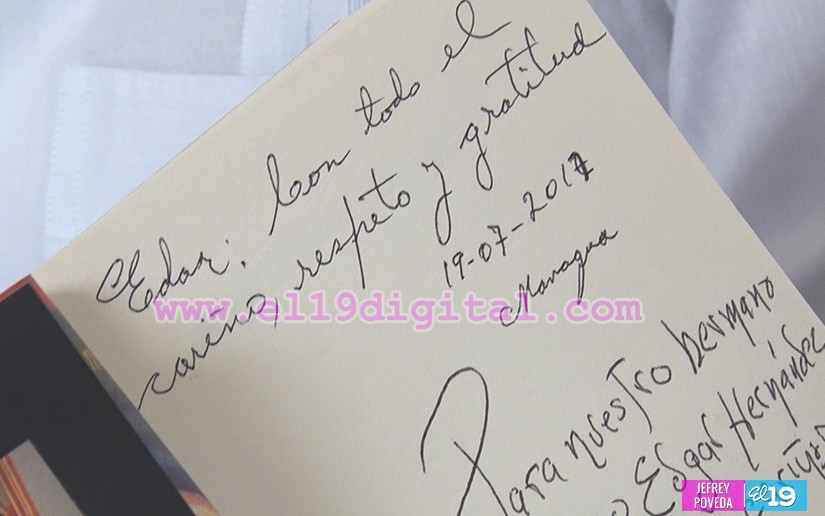 Edar: Con todo el
cariño, respeto y gratitud
19-07-2017
Managua
www.el19digital.com
Para nuestro hermano
Edgar Hernández
JEFREY
POVEDA
El 19